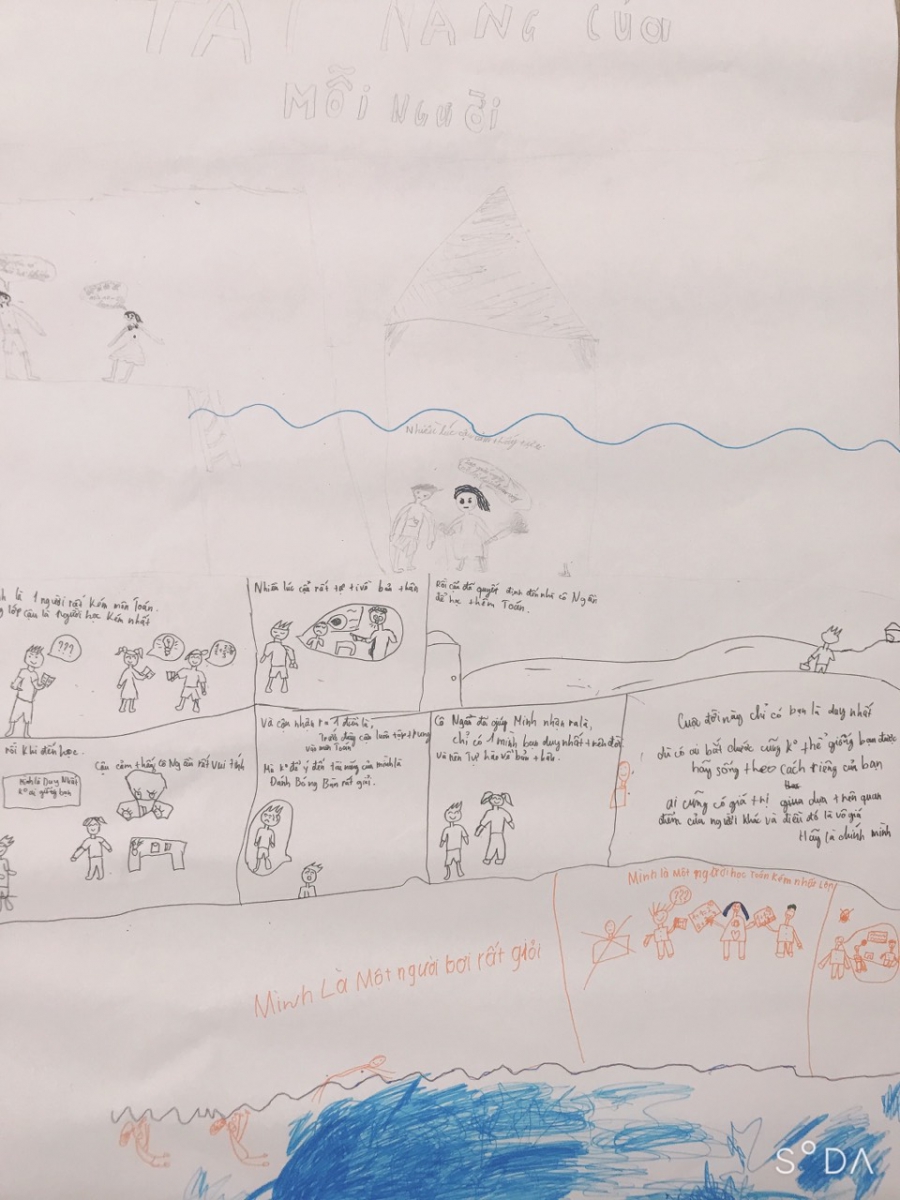 TÀI NĂNG CỦA
MỖI NGƯỜI
Nhiều lúc cậu
là 1 người rất kém môn Toán.
lớp cậu là 1 người học kém nhất
???
Nhiều lúc cậu rất tự ti về bản thân
Rồi cậu đã quyết định đến nhà cô Ngân
để học thêm Toán.
rồi khi đến học.
Cậu cảm thấy cô Ngân rất vui tính
mình là Duy Nhất
ko ai giống bạn
Và cậu nhận ra 1 điều là,
cậu luôn tập trung
vào môn Toán
Mà ko để ý đến tài năng của mình là
Đánh Bóng Bàn rất giỏi.
Cô Ngân đã giúp Minh nhận ra là,
chỉ có 1 mình bạn duy nhất trên đời
và nên Tự hào về bản thân.
Cuộc đời này chỉ có bạn là duy nhất
dù có ai bắt chước cũng ko thể giống bạn được
hãy sống theo cách riêng của bạn
ai cũng có giá trị dựa trên quan
điểm của người khác và điều đó là vô giá
Hãy là chính mình
Minh là Một người học Toán kém nhất Lớp
???
Minh Là Một người bơi rất giỏi
SODA